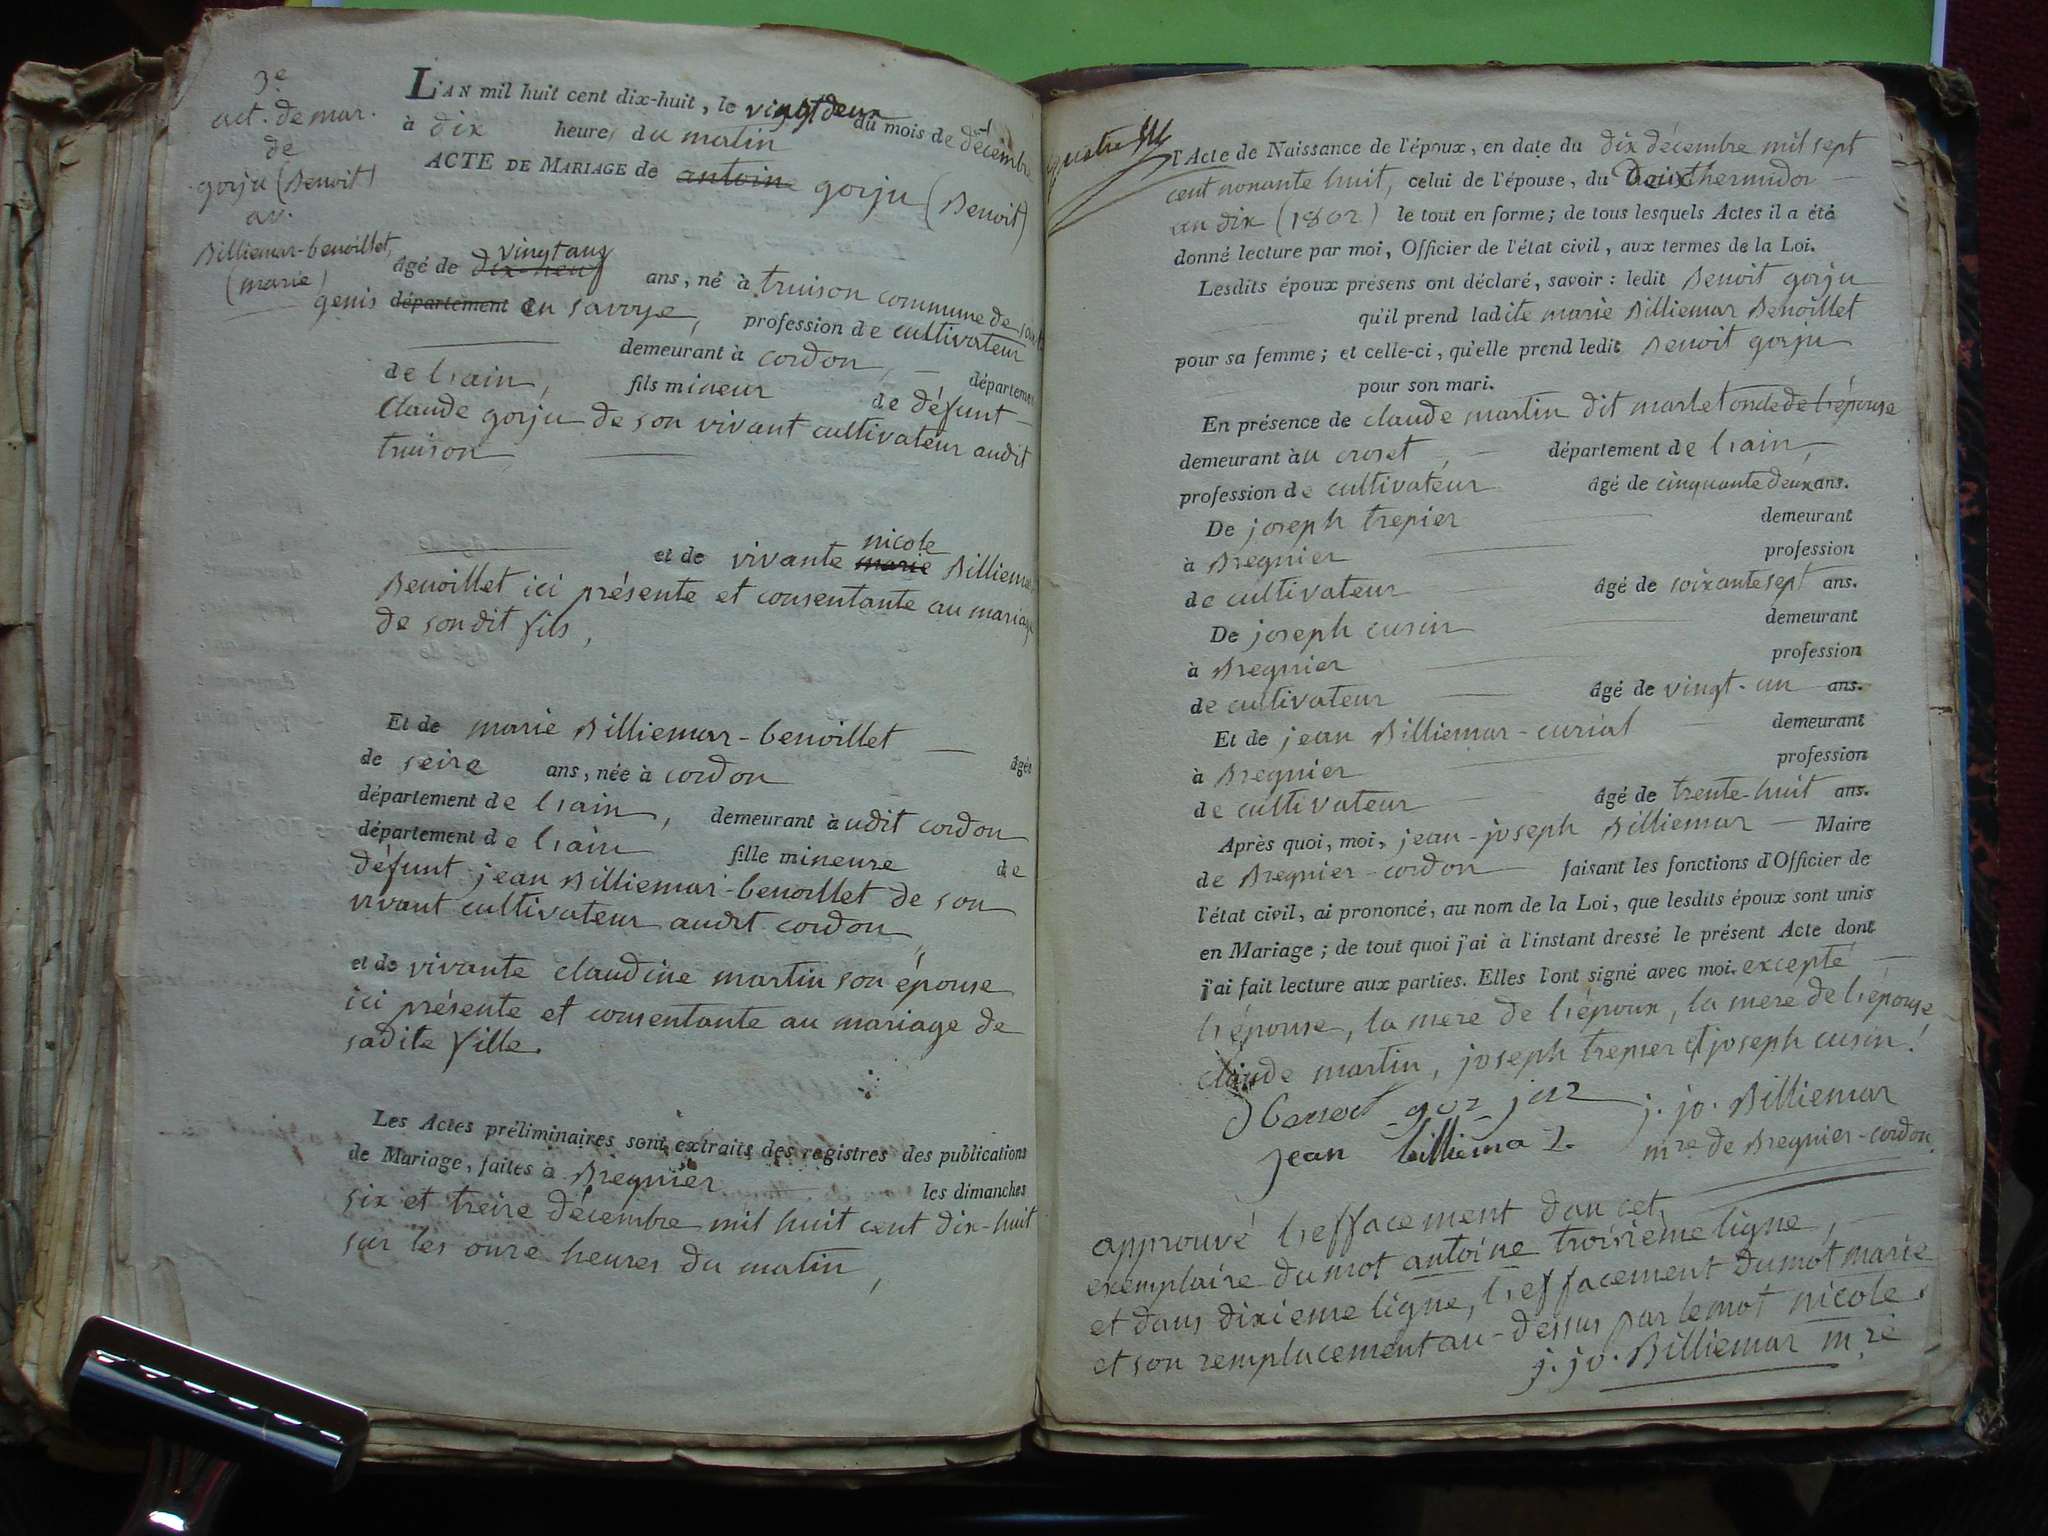 3e
act. de mar.
de
gorju (Benoit)
av.
Billiemar-benoillet,
(marie)
L'AN mil huit cent dix-huit, le vingt deux du mois de décembre
à dix heures du matin
ACTE DE MARIAGE de antoine gorju (Benoit)
vingt ans
âgé de dix-neuf ans, né à truison commune de saint
genis département en savoye, profession de cultivateur
demeurant à cordon, département
de l'ain, fils mineur de défunt
claude gorju de son vivant cultivateur audit
truison
nicole
et de vivante marie Billiemar
Benoillet ici présente et consentante au mariage
de son dit fils,
Et de marie Billiemar-benoillet âgée
de seize ans, née à cordon
département de l'ain, demeurant audit cordon
département de l'ain fille mineure de
défunt jean Billiemar-benoillet de son
vivant cultivateur audit cordon,
et de vivante claudine martin son épouse
ici présente et consentante au mariage de
sadite fille.
Les Actes préliminaires sont extraits des registres des publications
de Mariage, faites à Bregnier les dimanches
six et treize décembre mil huit cent dix-huit
sur les onze heures du matin,
l'Acte de Naissance de l'époux, en date du dix décembre mil sept
cent nonante huit, celui de l'épouse, du thermidor
an dix (1802) le tout en forme; de tous lesquels Actes il a été
donné lecture par moi, Officier de l'état civil, aux termes de la Loi.
Lesdits époux présens ont déclaré, savoir: ledit Benoit gorju
qu'il prend ladite marie Billiemar Benoillet
pour sa femme; et celle-ci, qu'elle prend ledit Benoit gorju
pour son mari.
En présence de claude martin dit marlet oncle de l'épouse
demeurant au crozet, département de l'ain,
profession de cultivateur âgé de cinquante deux ans.
De joseph trepier demeurant
à Bregnier profession
de cultivateur âgé de soixante sept ans.
De joseph cusin demeurant
à Bregnier profession
de cultivateur âgé de vingt-un ans.
Et de jean Billiemar-curial demeurant
à Bregnier profession
de cultivateur âgé de trente-huit ans.
Après quoi, moi, jean-joseph Billiemar Maire
de Bregnier-cordon faisant les fonctions d'Officier de
l'état civil, ai prononcé, au nom de la Loi, que lesdits époux sont unis
en Mariage; de tout quoi j'ai à l'instant dressé le présent Acte dont
j'ai fait lecture aux parties. Elles l'ont signé avec moi. excepté
l'épouse, la mere de l'époux, la mere de l'épouse
claude martin, joseph trepier et joseph cusin.
gorjuz j. jo. Billiemar
jean billiemaz. mre de Bregnier-cordon.
approuvé l'effacement dan cet
exemplaire du mot antoine troisième ligne,
et dans dixieme ligne, l'effacement du mot marie
et son remplacement au-dessus par le mot nicole.
j. jo. Billiemar mre